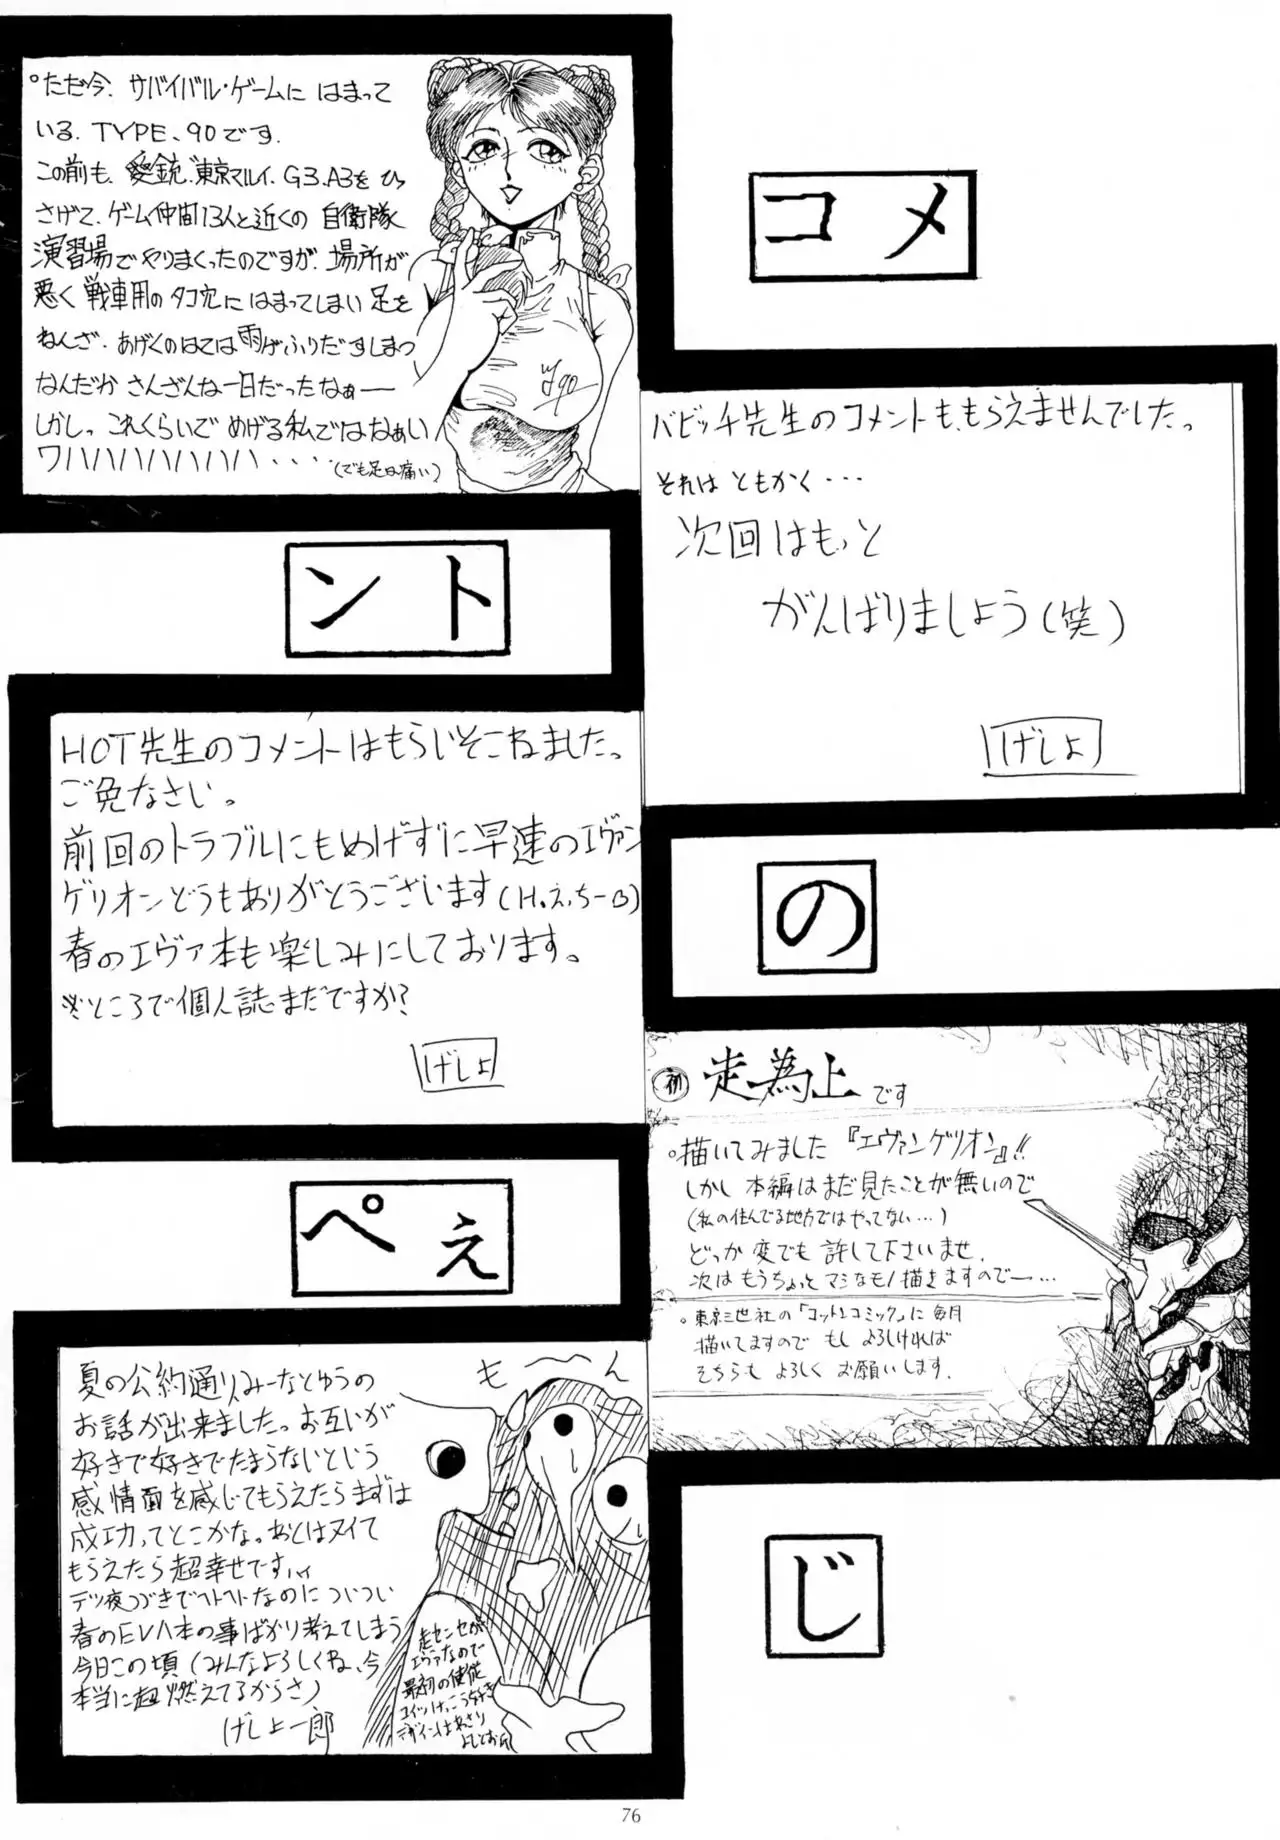 コメ
ント
の
ぺぇ
じ
°ただ今、サバイバル・ゲームに はまって
いる、TYPE、90です。
この前も、愛銃、東京マルイ、G3.A3を ひっ
さげて、ゲーム仲間13人と近くの 自衛隊
演習場でやりまくったのですが、場所が
悪く 戦車用のタコ穴に はまってしまい 足を
ねんざ、あげくのはては雨がふりだすしまつ
なんだか さんざんな一日だったなぁー
しかしっ これくらいで めげる私ではなぁい
ワハハハハハハハハハ・・・・(でも足は痛い)
バビッチ先生のコメントも、もらえませんでしたっ
それは ともかく・・・
次回はもっと
がんばりましょう(笑)
げしょ
HOT先生のコメントはもらいそこねましたっ
ご免なさい。
前回のトラブルにもめげずに早速のエヴァン
ゲリオンどうもありがとうございます(H。え、ちーB)
春のエヴァ本も楽しみにしております。
※ところで個人誌まだですか?
げしょ
初 走為上です
°描いてみました『エヴァンゲリオン』!!
しかし 本編はまだ見たことが無いので
(私の住んでる地方ではやってない…)
どっか変でも 許して下さいませ、
次は もうちょっと マシなモノ描きますのでー…
°東京三世社の「コットンコミック」に 毎月
描いてますので もし よろしければ
そちらも よろしく お願いします.
夏の公約通りみーなとゆうの
お話が出来ましたっお互いが
好きで好きでたまらないという
感情面を感じてもらえたらまずは
成功ってとこかな。あとはヌイて
もらえたら超幸せですい
デツ夜つづきでヘトヘトなのに ついつい
春のEVA本の事ばかり考えてしまう
今日この頃(みんなよろしくね、今
本当に超燃えてるからさ)
げしょ一郎
もーん
走センセが
エヴァなので
最初の使徒
コイツけっこう好き
デザインはあっさり
よしとお
76